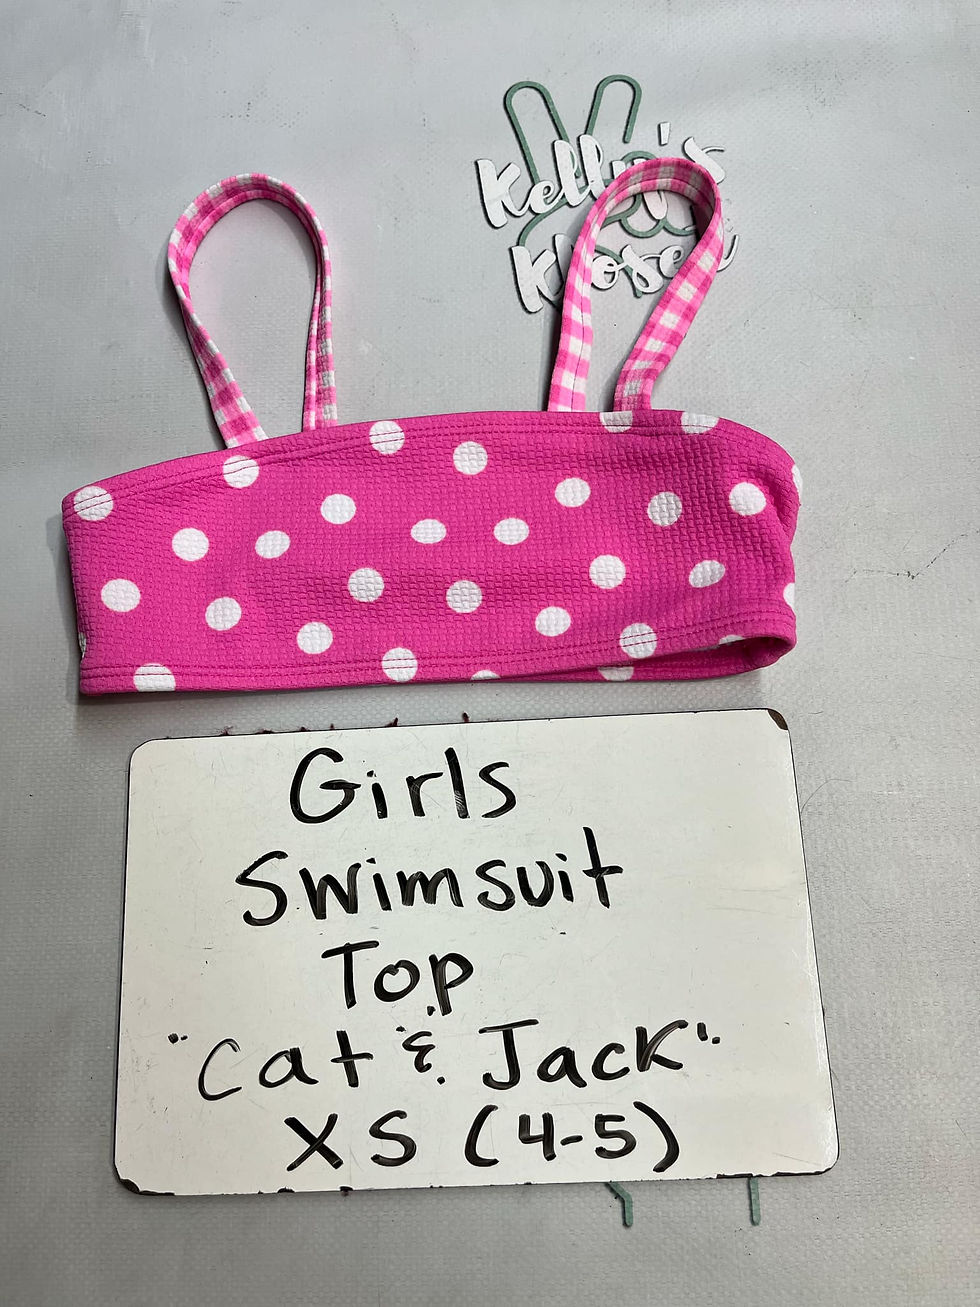 Kelly's
Kloset
Girls
Swimsuit
Top
"Cat & Jack"
XS (4-5)